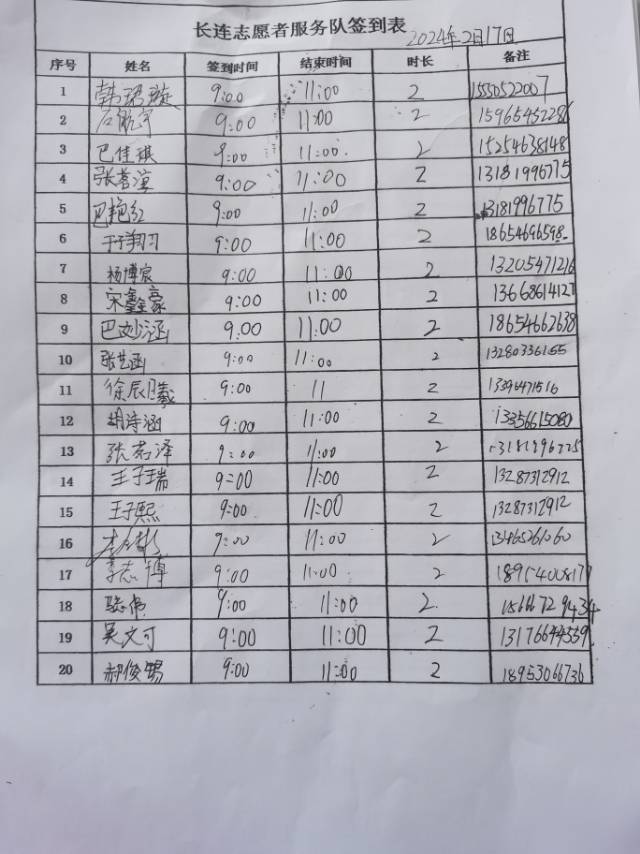 长连志愿者服务队签到表 2024年2月17日
序号 姓名 签到时间 结束时间 时长 备注
1 韩珺璇 9:00 11:00 2 15550522007
2 石航宇 9:00 11:00 2 15965452286
3 巴佳琪 9:00 11:00 2 15254638148
4 张茗渲 9:00 11:00 2 13181996775
5 巴艳红 9:00 11:00 2 13181996775
6 于子翔 9:00 11:00 2 18654696598
7 杨博宸 9:00 11:00 2 13205471216
8 宋鑫豪 9:00 11:00 2 13668614127
9 巴妙涵 9:00 11:00 2 18654662638
10 张艺函 9:00 11:00 2 13280336165
11 徐辰曦 9:00 11 2
12 胡诗涵 9:00 11:00 2 13356615080
13 张茗泽 9:00 11:00 2
14 王子瑞 9:00 11:00 2 13287312912
15 王子熙 9:00 11:00 2 13287312912
16 9:00 11:00 2 13465261060
17 李志博 9:00 11:00 2
18 9:00 11:00 2
19 吴文可 9:00 11:00 2 13176644559
20 郝俊锡 9:00 11:00 2 18953066736